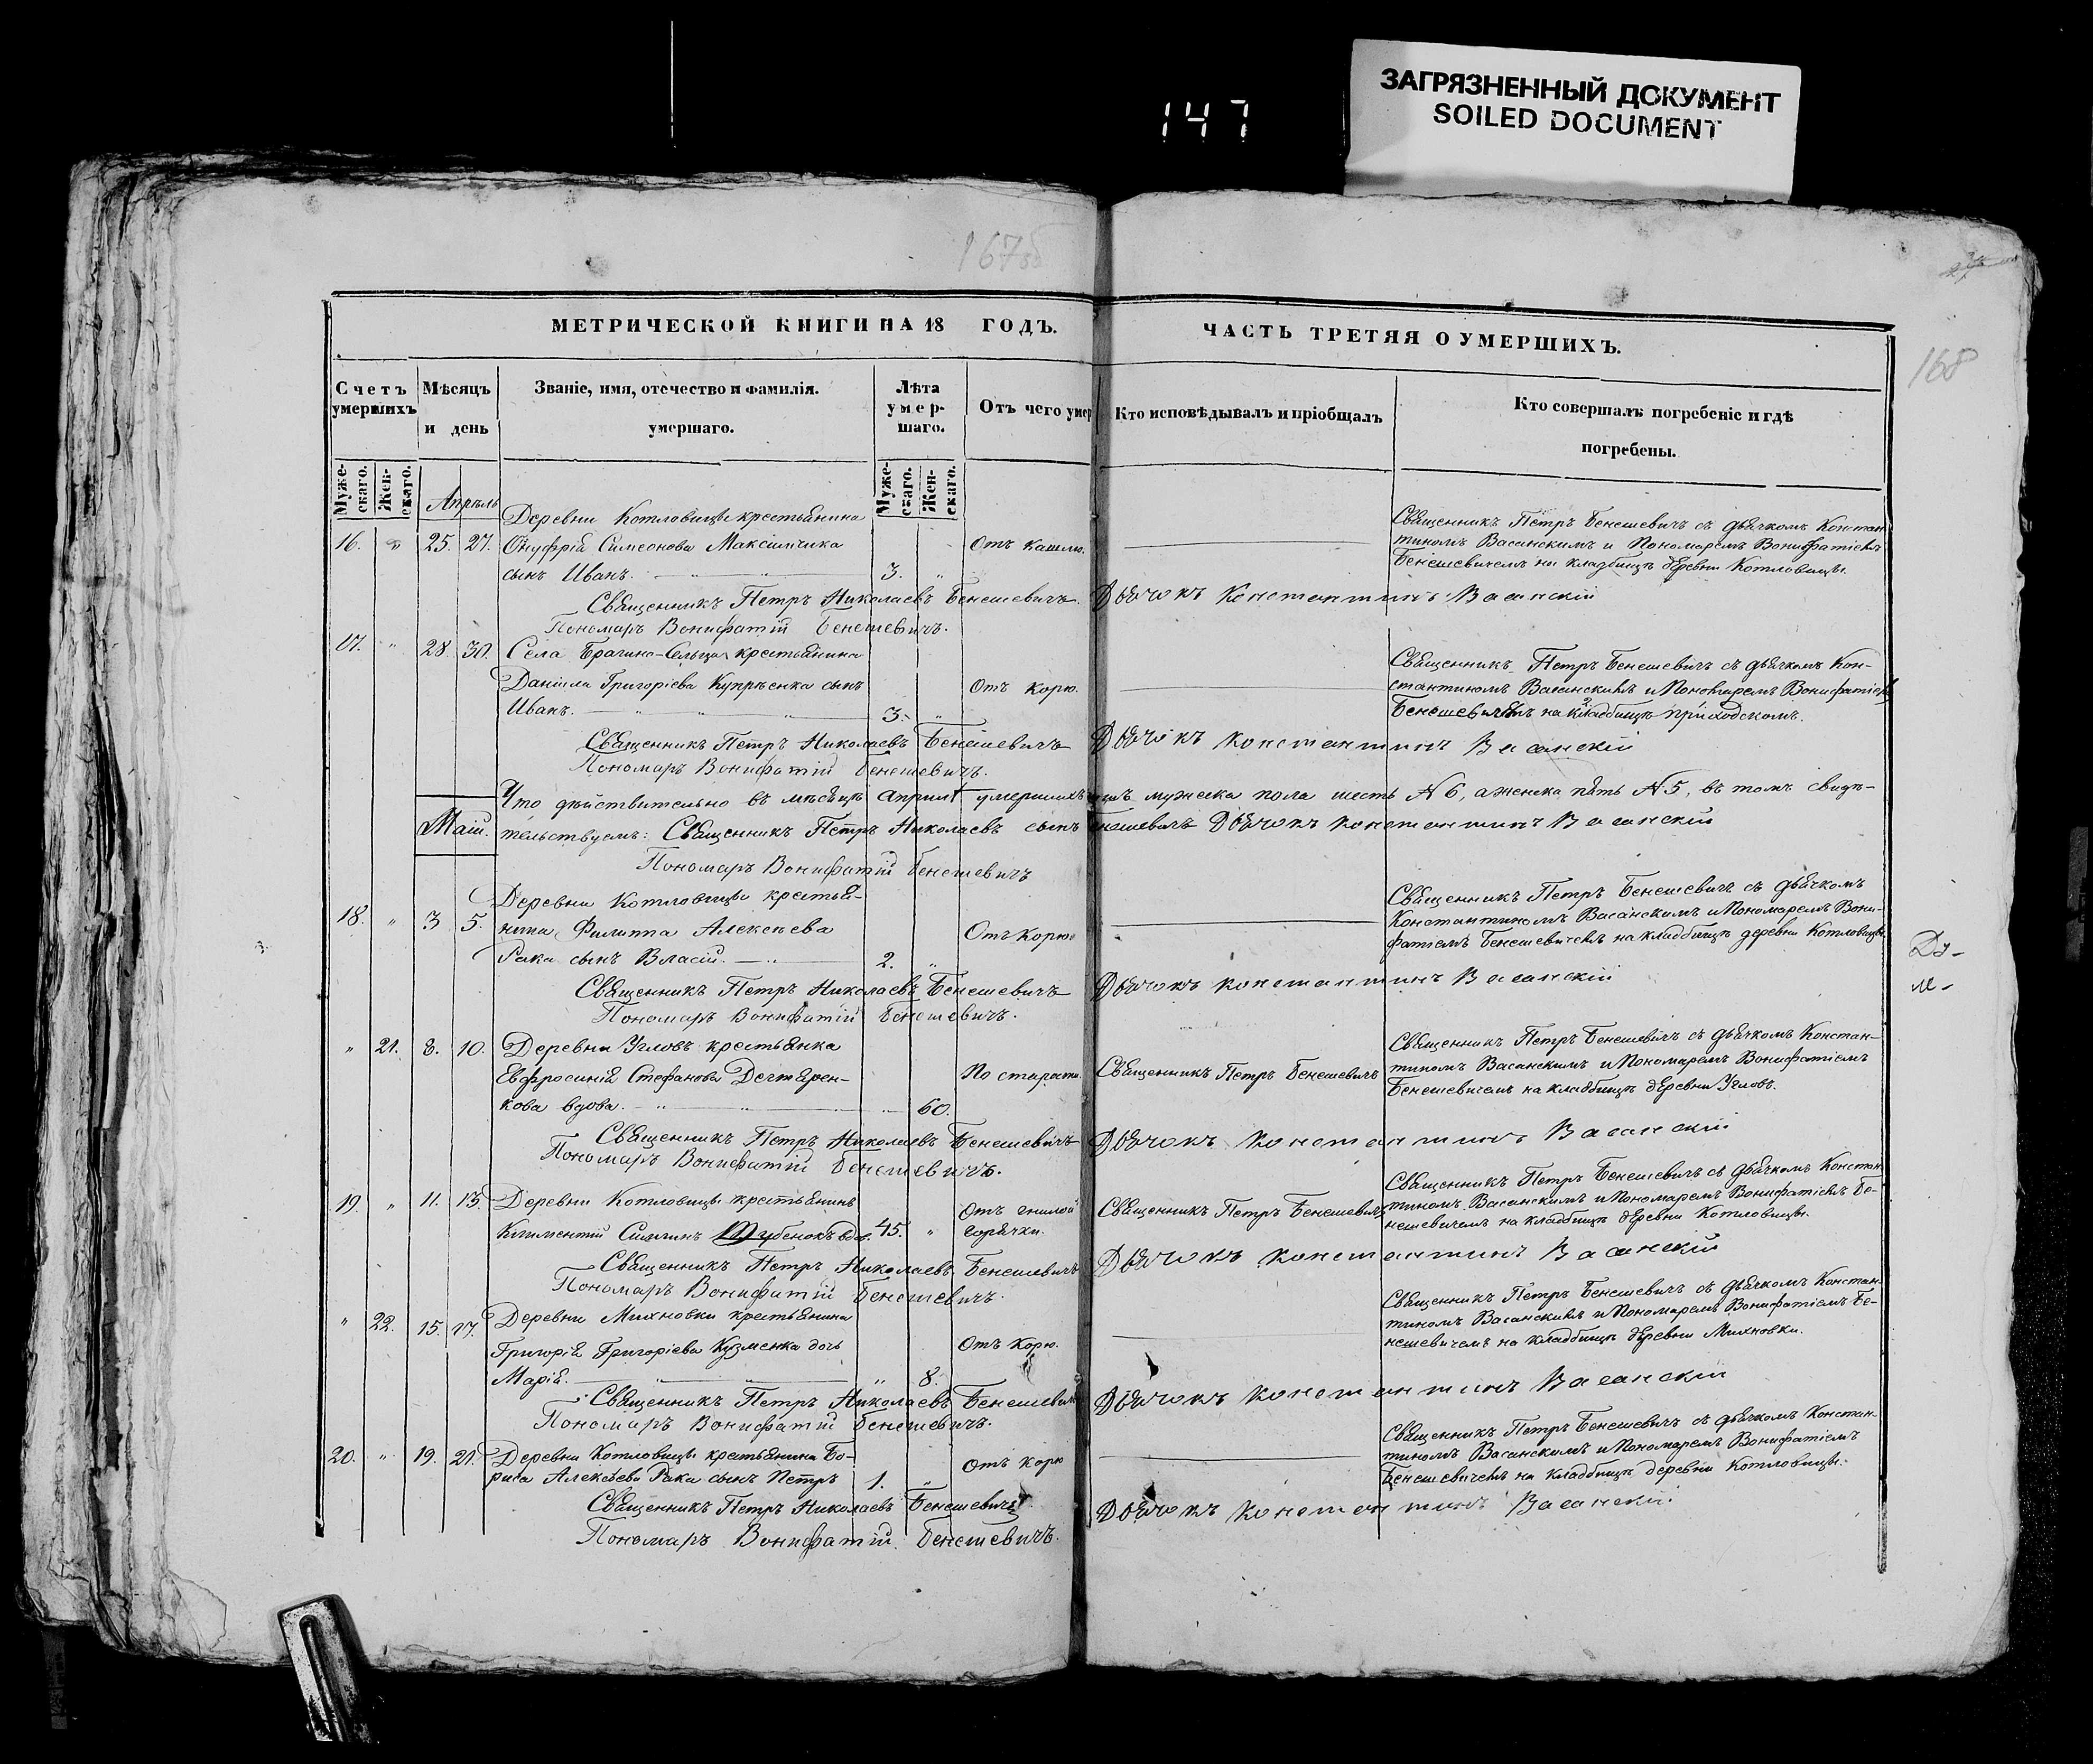 147
ЗАГРЯЗНЕННЫЙ ДОКУМЕНТ
SOILED DOCUMENT
167об
168
МЕТРИЧЕСКОЙ КНИГИ НА 18 ГОДЪ.
ЧАСТЬ ТРЕТЯЯ О УМЕРШИХЪ.
Счетъ умершихъ
Мѣсяцъ и день
Званіе, имя, отечество и фамилія.
умершаго.
Лѣта умер-
шаго.
Отъ чего умер
Кто исповѣдывалъ и пріобщалъ
Кто совершалъ погребеніе и гдѣ
погребены.
Муже-
скаго.
Жен-
скаго.
Муже-
скаго.
Жен-
скаго.
Апрѣль
Деревни Котловицы крестьянина
16. " 25. 27. Онуфрія Симеонова Максимчика
сынъ Иванъ. 3. "
Отъ кашлю.
Священникъ Петръ Бенешевичъ съ дьячкомъ Констан
тиномъ Васанскимъ и Пономаремъ Вонифатіемъ
Бенешевичемъ на кладбищѣ деревни Котловицы.
Священникъ Петръ Николаевъ Бенешевичъ. Дьячокъ Константинъ Васанскій
Пономарь Вонифатій Бенешевичъ.
17. " 28. 30. Села Брагина-Сельца крестьянина
Даніила Григоріева Купрѣенка сынъ
Иванъ. 3. "
Отъ корю.
Священникъ Петръ Бенешевичъ съ дьячкомъ Кон-
стантиномъ Васанскимъ и Пономаремъ Вонифатіемъ
Бенешевичемъ на кладбищѣ приходскомъ.
Священникъ Петръ Николаевъ Бенешевичъ Дьячокъ Константинъ Васанскій
Пономарь Вонифатій Бенешевичъ.
Что дѣйствительно въ мѣсяцѣ апрѣлѣ умершихъ мужеска пола шесть N 6, а женска пять N 5, въ томъ свидѣ-
Маій.
тельствуемъ: Священникъ Петръ Николаевъ сынъ Бенешевичъ Дьячокъ Константинъ Васанскій
Пономарь Вонифатій Бенешевичъ
Деревни Котловицы крестья-
18. " 3 5. нина Филиппа Алексѣева
Рака сынъ Власій. 2. "
Отъ корю
Священникъ Петръ Бенешевичъ съ дьячкомъ
Константиномъ Васанскимъ и Пономаремъ Вони-
фатіемъ Бенешевичемъ на кладбищѣ деревни Котловицы.
Священникъ Петръ Николаевъ Бенешевичъ Дьячокъ Константинъ Васанскій
Пономарь Вонифатій Бенешевичъ.
" 21. 8. 10. Деревни Угловъ крестьянка
Евфросинія Стефанова Дегтярен-
кова вдова. 60.
По старости.
Священникъ Петръ Бенешевичъ
Священникъ Петръ Бенешевичъ съ дьячкомъ Констан-
тиномъ Васанскимъ и Пономаремъ Вонифатіемъ
Бенешевичемъ на кладбищѣ деревни Угловъ.
Священникъ Петръ Николаевъ Бенешевичъ Дьячокъ Константинъ Васанскій
Пономарь Вонифатій Бенешевичъ.
19. " 11. 13. Деревни Котловицы крестьянинъ
Климентій 45. "
Отъ гнилой
горячки.
Священникъ Петръ Бенешевичъ
Священникъ Петръ Бенешевичъ съ дьячкомъ Констан
тиномъ Васанскимъ и Пономаремъ Вонифатіемъ Бе-
нешевичемъ на кладбищѣ деревни Котловицы.
Священникъ Петръ Николаевъ Бенешевичъ Дьячокъ Константинъ Васанскій
Пономарь Вонифатій Бенешевичъ.
" 22. 15. 17. Деревни Михновки крестьянина
Григорія Григоріева Кузменка дочь
Марія. " 8.
Отъ корю.
Священникъ Петръ Бенешевичъ съ дьячкомъ Констан-
тиномъ Васанскимъ и Пономаремъ Вонифатіемъ Бе-
нешевичемъ на кладбищѣ деревни Михновки.
Священникъ Петръ Николаевъ Бенешевичъ Дьячокъ Константинъ Васанскій
Пономарь Вонифатій Бенешевичъ.
20. " 19. 21. Деревни Котловицы крестьянина Бо-
риса Алексѣева Рака сынъ Петръ 1. "
Отъ корю
Священникъ Петръ Бенешевичъ съ дьячкомъ Констан-
тиномъ Васанскимъ и Пономаремъ Вонифатіемъ
Бенешевичемъ на кладбищѣ деревни Котловицы.
Священникъ Петръ Николаевъ Бенешевичъ Дьячокъ Константинъ Васанскій
Пономарь Вонифатій Бенешевичъ.